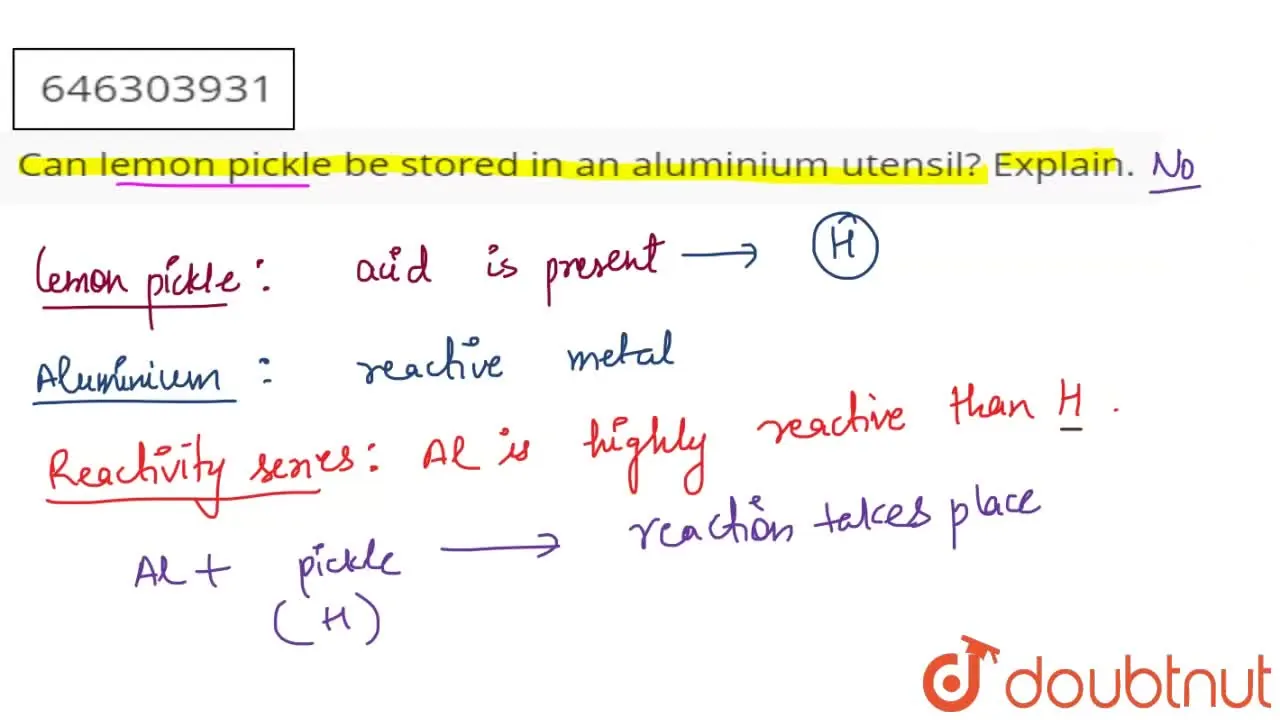 646303931
Can lemon pickle be stored in an aluminium utensil? Explain. No
Lemon pickle : acid is present → H
Aluminium : reactive metal
Reactivity series : Al is highly reactive than H.
Al + pickle → reaction takes place
(H)
doubtnut